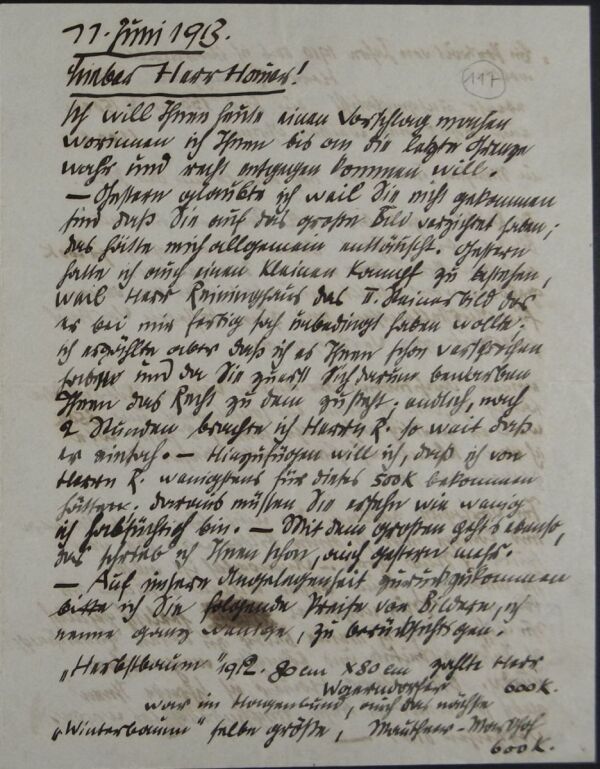 11. Juni 1913.
Lieber Herr Hauer!
117
Ich will Ihnen heute einen Vorschlag machen
worinnen ich Ihnen bis an die letzte Grenze
wahr und recht entgegen kommen will.
— Gestern glaubte ich weil Sie nicht gekommen
sind daß Sie auf das große Bild verzichtet haben;
das hätte mich allgemein enttäuscht. Gestern
hatte ich auch einen kleinen Kampf zu bestehen,
weil Herr Reininghaus das II. Steinerbild das
er bei mir fertig sah unbedingt haben wollte;
ich erzählte aber daß ich es Ihnen schon versprochen
habe und da Sie zuerst Sich darum bewarben
Ihnen das Recht zu dem zusteht; endlich, nach
2 Stunden brachte ich Herrn R. so weit daß
er einsah. — Hinzufügen will ich, daß ich von
Herrn R. wenigstens für dieses 500K bekommen
hätte. daraus müssen Sie ersehn wie wenig
ich habsüchtig bin. — Mit dem großen geht's ebenso,
das schrieb ich Ihnen schon, auch gestern mehr.
— Auf unsere Angelegenheit zurückzukommen
bitte ich Sie folgende Preise von Bildern, ich
nenne ganz wenige, zu berücksichtigen.
„Herbstbaum" 1912. 80cm x 80cm zahlte Herr
Waerndorfer 600K.
war im Hagenbund, auch das nächste
„Winterbaum" selbe größe, Mautner-Markhof
600K.